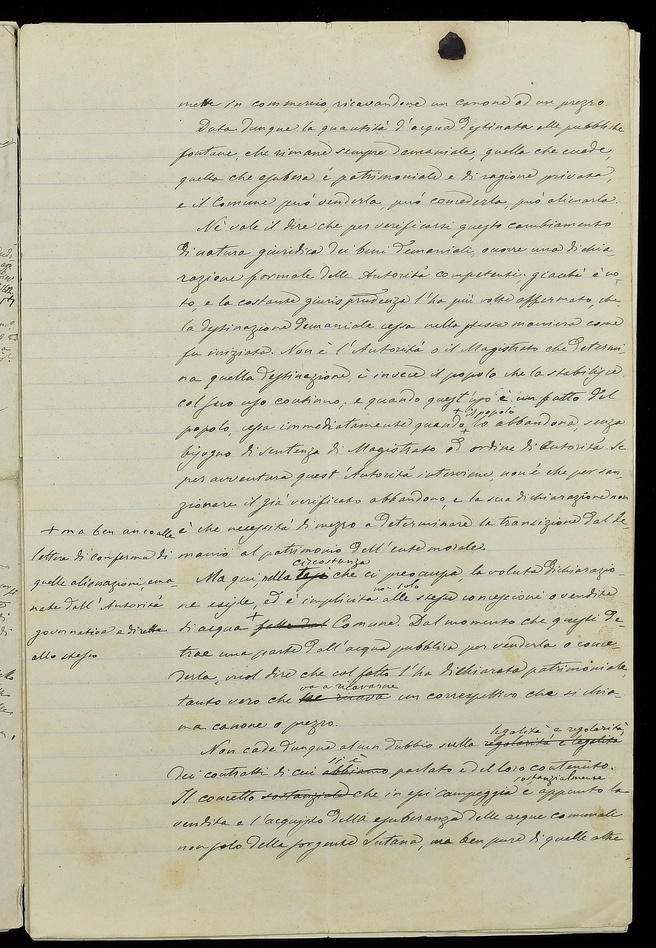 mette in commercio, ricavandone un canone od un prezzo.
Data dunque la quantità d'acqua destinata alle pubbliche
fontane, che rimane sempre demaniale, quella che eccede,
quella che esubera è patrimoniale e di ragione privata,
e il Comune può venderla, può concederla, può alienarla.
Nè vale il dire che per verificarsi questo cambiamento
di natura giuridica dei beni demaniali, occorre una dichia-
razione formale delle Autorità competenti; giacchè è no-
to, e la costante giurisprudenza l'ha più volte affermato, che
la destinazione demaniale cessa nella stessa maniera come
fu iniziata. Non è l'Autorità o il Magistrato che determi-
na quella destinazione, è invece il popolo che la stabilisce
col suo uso continuo; e quando quest'uso è un fatto del
+ il popolo
popolo, cessa immediatamente quando + lo abbandona, senza
bisogno di sentenza di Magistrato od ordine di Autorità. Se
per avventura quest'Autorità interviene, non è che per san-
zionare il già verificato abbandono, e la sua dichiarazione non
è che necessità di mezzo a determinare la transizione dal de-
manio al patrimonio dell'ente morale.
circostanza
Ma qui nella tesi che ci preoccupa, la voluta dichiarazio-
non solo
ne esiste, ed è implicita alle stesse concessioni o vendite
di acqua + fatte dal Comune. Dal momento che questi de-
trae una parte dall'acqua pubblica per venderla o conce-
derla, vuol dire che col fatto l'ha dichiarata patrimoniale,
va a ricavarne
tanto vero che ne ricava un correspettivo che si chia-
ma canone o prezzo.
legalità e regolarità
Non cade dunque alcun dubbio sulla regolarità e legalità
si è
dei contratti di cui abbiamo parlato e del loro contenuto.
sostanzialmente
Il concetto sostanziale che in essi campeggia è appunto la
vendita e l'acquisto della esuberanza delle acque comunali
non solo della sorgente Sutana, ma ben pure di quelle altre
+ ma ben anco alle
lettere di conferma di
quelle alienazioni, ema-
nate dall'Autorità
governativa e dirette
allo stesso